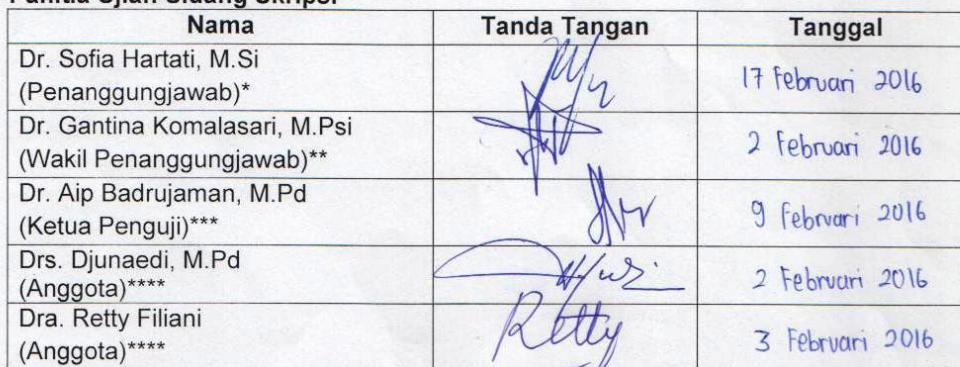 Panitia Ujian Sidang Skripsi
Nama Tanda Tangan Tanggal
Dr. Sofia Hartati, M.Si
(Penanggungjawab)*
17 Februari 2016
Dr. Gantina Komalasari, M.Psi
(Wakil Penanggungjawab)**
2 Februari 2016
Dr. Aip Badrujaman, M.Pd
(Ketua Penguji)***
9 Februari 2016
Drs. Djunaedi, M.Pd
(Anggota)****
2 Februari 2016
Dra. Retty Filiani
(Anggota)****
Retty
3 Februari 2016